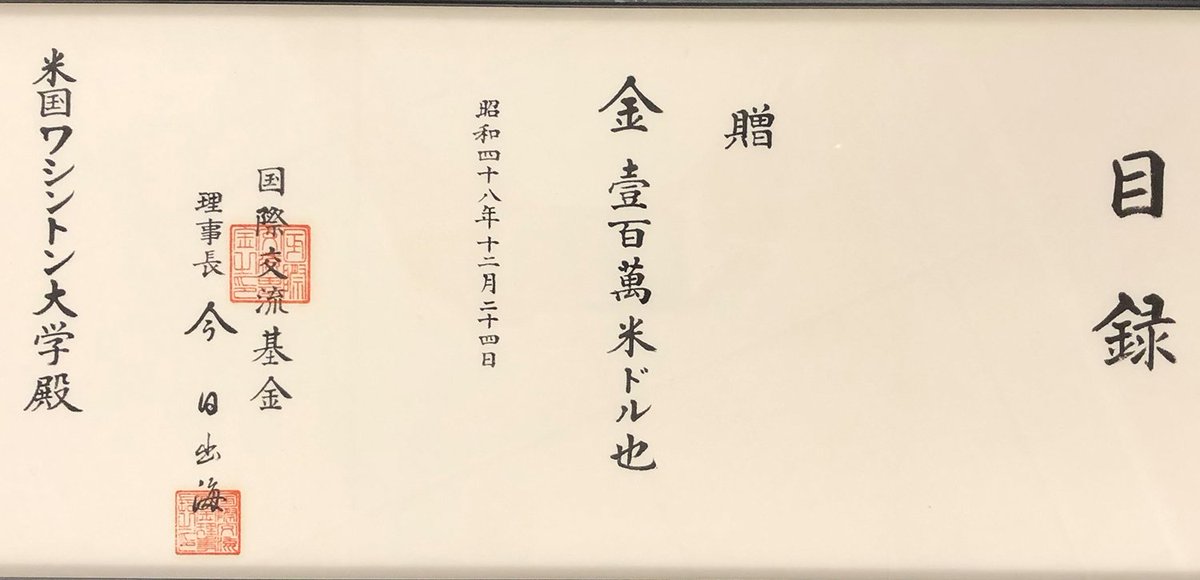 目録
贈
金壹百萬米ドル也
昭和四十八年十二月二十四日
国際交流基金
理事長 今日出海
米国ワシントン大学殿